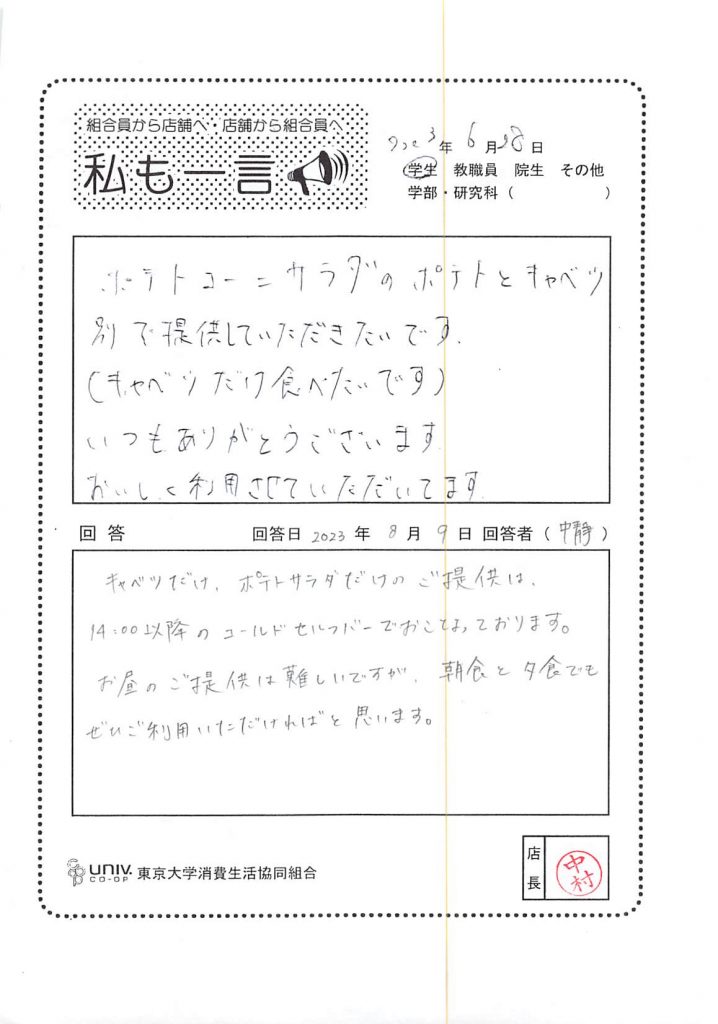 組合員から店舗へ・店舗から組合員へ
私も一言
2023年 6月28日
学生 教職員 院生 その他
学部・研究科（ ）
ポテトコーンサラダのポテトとキャベツ
別で提供していただきたいです.
(キャベツだけ食べたいです)
いつもありがとうございます.
おいしく利用させていただいてます.
回答 回答日 2023 年 8 月 9 日 回答者（中静）
キャベツだけ、ポテトサラダだけのご提供は、
14:00以降のコールドセルフバーでおこなっております。
お昼のご提供は難しいですが、朝食と夕食でも
ぜひご利用いただければと思います。
UNIV. CO-OP 東京大学消費生活協同組合
店長 中村